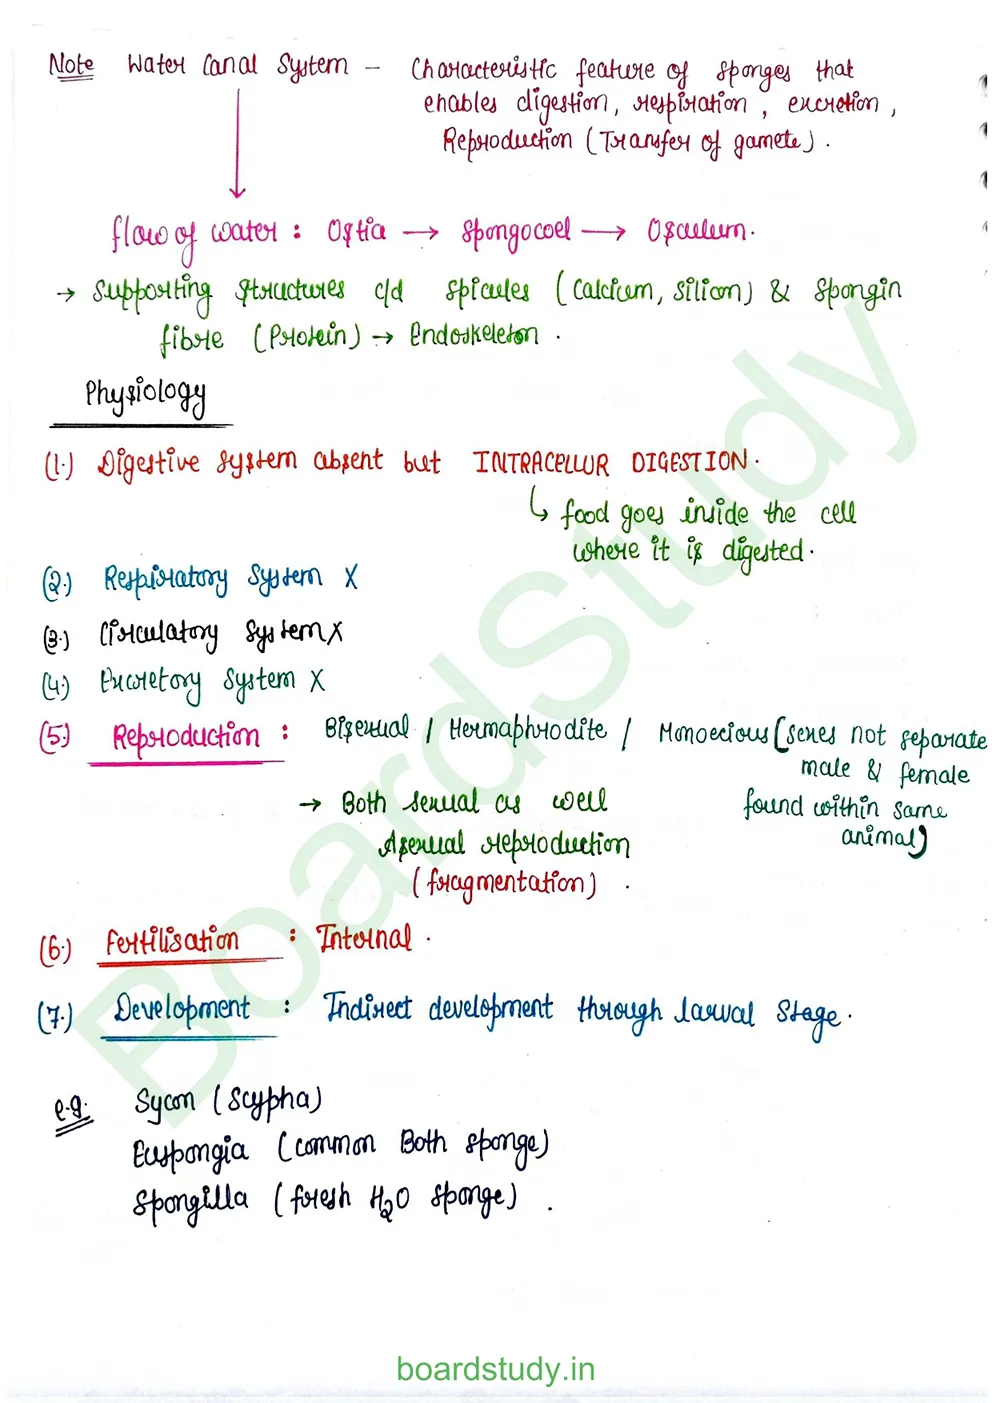 Note Water Canal System – Characteristic feature of sponges that
enables digestion, respiration, excretion,
Reproduction (Transfer of gamete).
flow of water : Ostia → Spongocoel → Osculum.
→ Supporting structures c/d spicules (Calcium, Silicon) & Spongin
fibre (Protein) → Endoskeleton.
Physiology
(1.) Digestive system absent but INTRACELLUR DIGESTION.
↳ food goes inside the cell
where it is digested.
(2.) Respiratory System X
(3.) Circulatory System X
(4.) Excretory System X
(5.) Reproduction : Bisexual / Hermaphrodite / Monoecious (sexes not separate
male & female
found within same
animal)
→ Both sexual as well
Asexual reproduction
(fragmentation).
(6.) Fertilisation : Internal.
(7.) Development : Indirect development through larval stage.
e.g. Sycon (Scypha)
Euspongia (Common Both sponge)
Spongilla (fresh H2O sponge).
BoardStudy
boardstudy.in